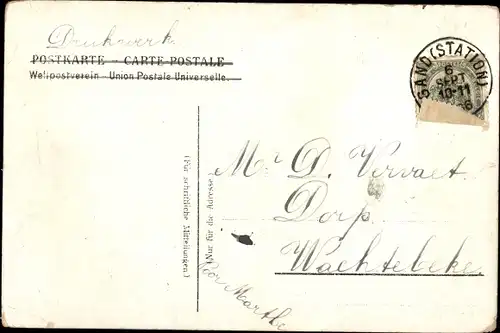 Druckwerk
POSTKARTE – CARTE POSTALE
Weltpostverein – Union Postale Universelle.
SAND (STATION)
6
SEPT
10-11
(Für schriftliche Mitteilungen.)
(Nur für die Adresse)
Mr D. Vervaet
Dorp
Wachtebeke
Voor Marthe